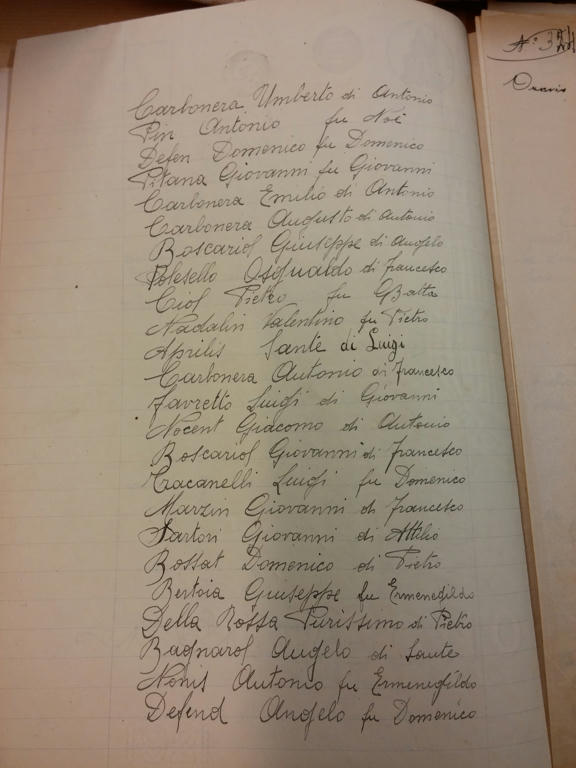 Carbonera Umberto di Antonio
Pin Antonio fu Noè
Defen Domenico fu Domenico
Pitana Giovanni fu Giovanni
Carbonera Emilio di Antonio
Carbonera Augusto di Antonio
Boscariol Giuseppe di Angelo
Polesello Osqualdo di Francesco
Ciol Pietro fu GBatta
Nadalin Valentino fu Pietro
Aprilis Sante di Luigi
Carbonera Antonio di Francesco
Favretto Luigi di Giovanni
Nocent Giacomo di Antonio
Boscariol Giovanni di Francesco
Tracanelli Luigi fu Domenico
Marzin Giovanni di Francesco
Sartori Giovanni di Attilio
Bossat Domenico di Pietro
Bertoia Giuseppe fu Ermenegildo
Della Rossa Purissimo di Pietro
Bagnarol Angelo di Sante
Nonis Antonio fu Ermenegildo
Defend Angelo fu Domenico